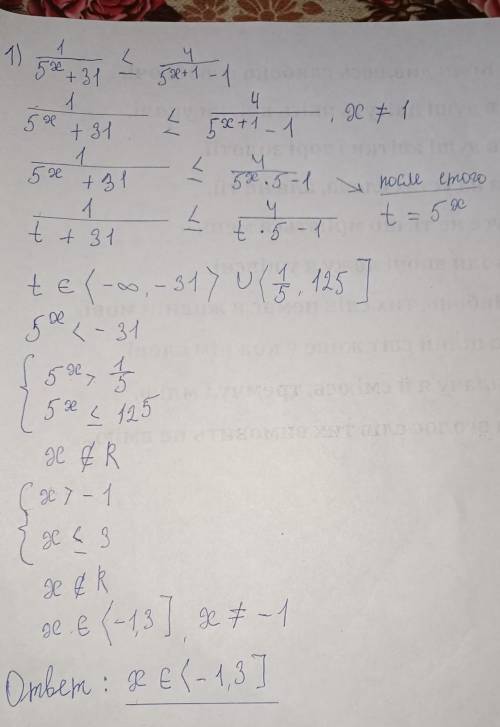 1) 1/(5^x + 31) ≤ 4/(5^(x+1) − 1)
1/(5^x + 31) ≤ 4/(5^(x+1) − 1), x ≠ 1
1/(5^x + 31) ≤ 4/(5^x · 5 − 1) ↘ после этого
1/(t + 31) ≤ 4/(t · 5 − 1) t = 5^x
t ∈ ⟨−∞, −31⟩ ∪ ⟨1/5, 125]
5^x < −31
{ 5^x > 1/5
5^x ≤ 125
x ∉ R
{ x > −1
x ≤ 3
x ∉ R
x ∈ ⟨−1,3], x ≠ −1
Ответ: x ∈ ⟨−1,3]